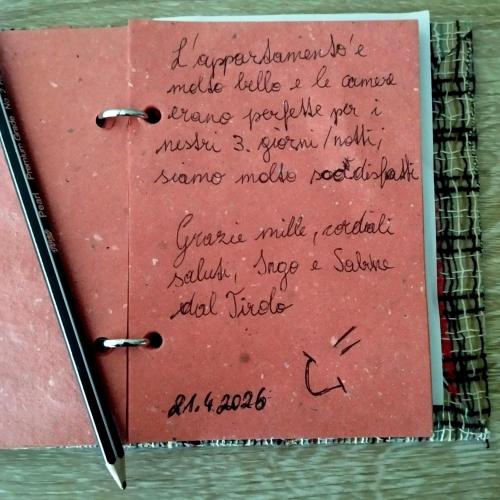 L'appartamento è
molto bello e le camere
erano perfette per i
nostri 3. giorni/notti,
siamo molto soddisfatti
Grazie mille, cordiali
saluti, Ingo e Sabine
dal Tirolo
21.4.2026
Pearl Premium Grade